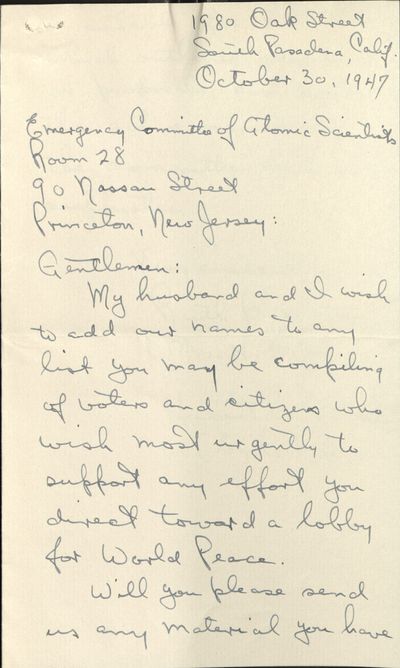 1980 Oak Street
South Pasadena, Calif.
October 30, 1947
Emergency Committee of Atomic Scientists
Room 28
90 Nassau Street
Princeton, New Jersey:
Gentlemen:
My husband and I wish
to add our names to any
list you may be compiling
of voters and citizens who
wish most urgently to
support any effort you
direct toward a lobby
for World Peace.
Will you please send
us any material you have